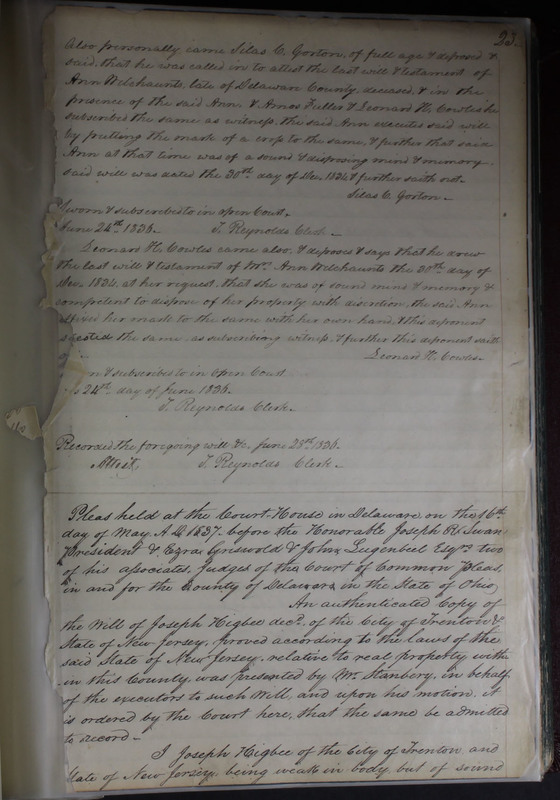 23.
Also personally came Silas C. Gorton, of full age & deposed &
said, that he was called in to attest the last will & testament of
Ann Welchaunts, late of Delaware County, deceased, & in the
presence of the said Ann, & Amos Fuller & Leonard H. Cowles he
subscribed the same as witness, the said Ann executed said will
by putting the mark of a cross to the same, & further that said
Ann at that time was of a sound & disposing mind & memory.
said will was dated the 30th day of Dec. 1834 & further saith not.
Silas C. Gorton
Sworn & subscribed to in open Court
June 24th 1836. T. Reynolds Clerk
Leonard H. Cowles came also, & deposes & says that he drew
the last will & testament of Mrs Ann Welchaunts the 30th day of
Dec. 1834, at her request, that she was of sound mind & memory &
competent to dispose of her property with discretion, the said Ann
affixed her mark to the same with her own hand, & this deponent
attested the same, as subscribing witness, & further this deponent saith
Leonard H. Cowles
n & subscribed to in Open Court
24th day of June 1836.
T. Reynolds Clerk
Recorded the foregoing will &c. June 28th 1836.
Attest, T. Reynolds Clerk
Pleas held at the Court-House in Delaware on the 16th
day of May A.D. 1837. before the Honorable Joseph R. Swan
President & Ezra Griswold & John Lugenbeel Esqrs two
of his associates, Judges of the Court of Common Pleas,
in and for the County of Delaware in the State of Ohio,
An authenticated Copy of
the Will of Joseph Higbee decd. of the City of Trenton &
State of New Jersey, proved according to the laws of the
said State of New Jersey, relative to real property with
in this County, was presented by Mr. Stanbery, in behalf
of the executors to such Will, and upon his motion, it
is ordered by the Court here, that the same be admitted
to record
I Joseph Higbee of the City of Trenton and
State of New Jersey, being weak in body but of sound